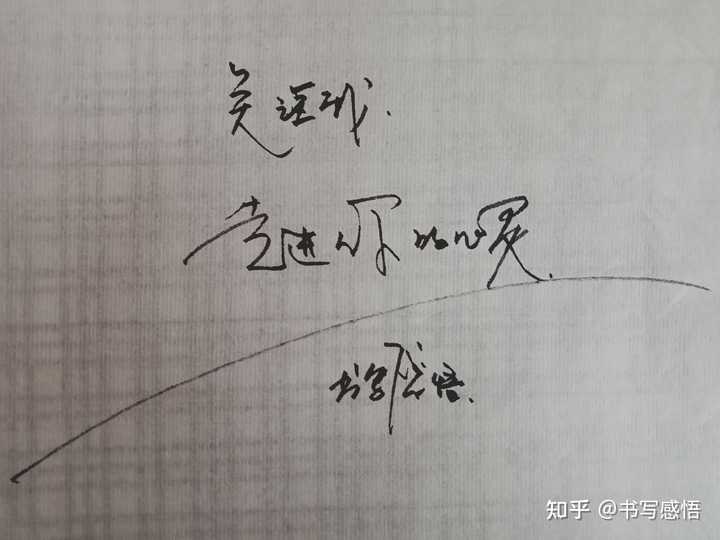 关注我.
走进你的心灵.
书写感悟.
知乎 @书写感悟